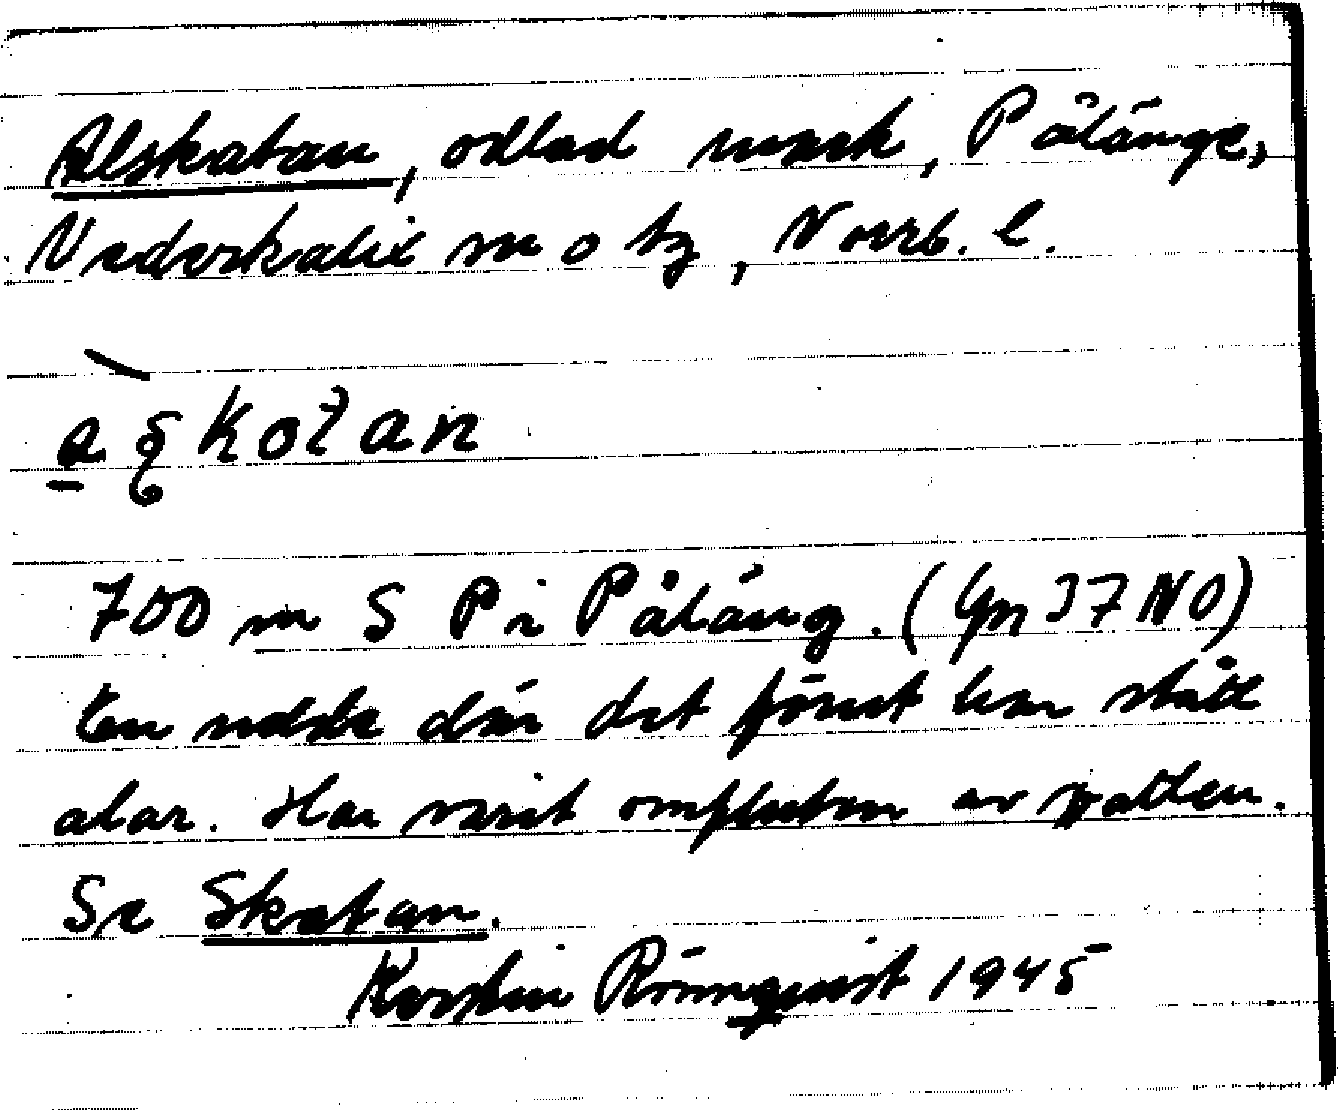 Alskatan, odlad mark, Pålänge,
Nederkalix sn o tg, Norrb. l.
700 m S P i Påläng. (Gn 37 NO)
En udde där det förut har stått
alar. Har varit omfluten av vatten.
Se Skatan.
Kerstin Rönnqvist 1945